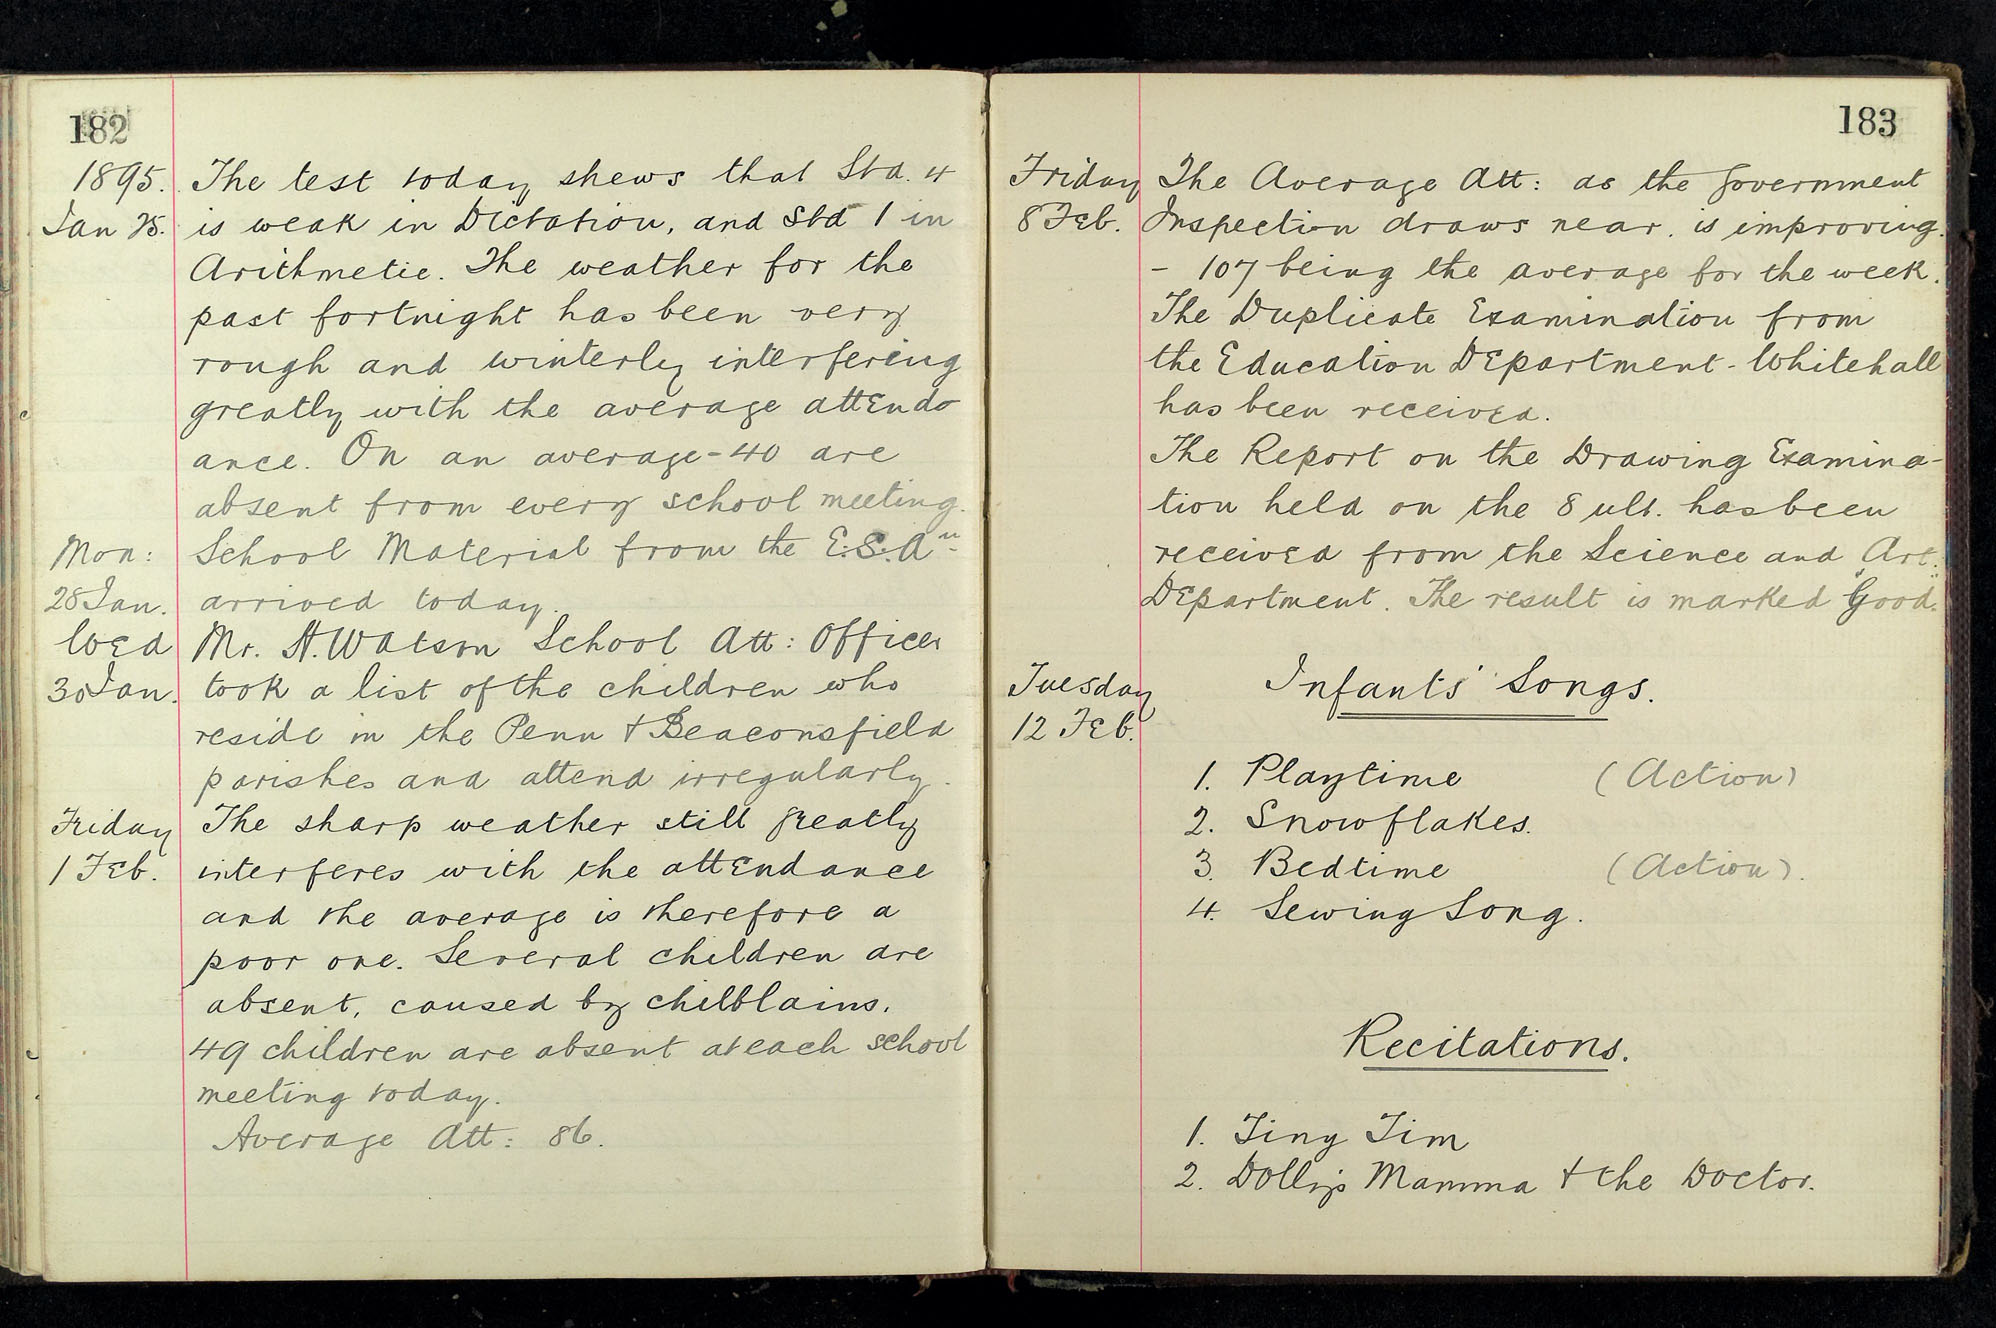 182
1895. The test today shews that Std. 4
Jan 25. is weak in Dictation, and Std 1 in
Arithmetic. The weather for the
past fortnight has been very
rough and winterly interfering
greatly with the average attend
ance. On an average - 40 are
absent from every school meeting.
Mon: School Material from the E.S.Aⁿ
28 Jan. arrived today.
Wed Mr. H. Watson School Att: Officer
30 Jan. took a list of the children who
reside in the Penn & Beaconsfield
parishes and attend irregularly.
Friday The sharp weather still greatly
1 Feb. interferes with the attendance
and the average is therefore a
poor one. Several children are
absent, caused by chilblains.
49 children are absent at each school
meeting today.
Average Att: 86.
183
Friday The Average Att: as the Government
8 Feb. Inspection draws near, is improving.
- 107 being the average for the week.
The Duplicate Examination from
the Education Department - Whitehall
has been received.
The Report on the Drawing Examina-
tion held on the 8 ult. has been
received from the Science and Art.
Department. The result is marked "Good."
Tuesday Infants' Songs.
12 Feb.
1. Playtime (Action)
2. Snowflakes.
3. Bedtime (Action).
4. Sewing Song.
Recitations.
1. Tiny Tim
2. Dolly's Mamma & the Doctor.